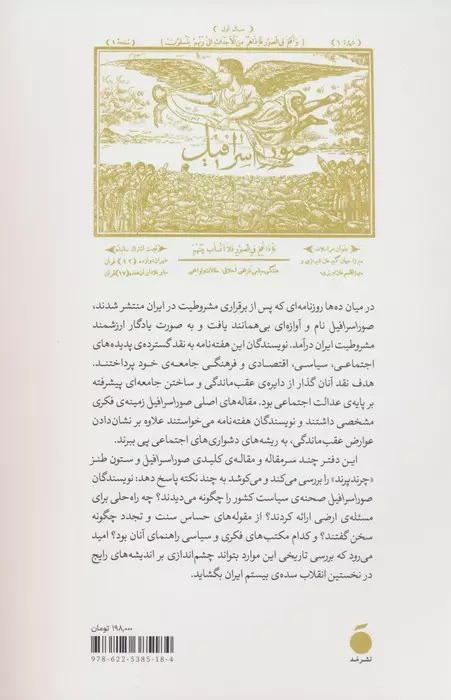 ( سال اول )
( شمارهٔ ۱ )
[ و نفخ فی الصور فاذا هم من الاجداث الی ربهم ینسلون ]
( صفحهٔ ۱ )
صور اسرافیل
فاذا نفخ فی الصور فلا انساب بینهم
عنوان مراسلات
قیمت اشتراک سالیانه
طهران دوازده (۱۲) قران
در میان ده‌ها روزنامه‌ای که پس از برقراری مشروطیت در ایران منتشر شدند،
صوراسرافیل نام و آوازه‌ای بی‌همانند یافت و به صورت یادگار ارزشمند
مشروطیت ایران درآمد. نویسندگان این هفته‌نامه به نقد گسترده‌ی پدیده‌های
اجتماعی، سیاسی، اقتصادی و فرهنگی جامعه‌ی خود پرداختند.
هدف نقد آنان گذار از دایره‌ی عقب‌ماندگی و ساختن جامعه‌ای پیشرفته
بر پایه‌ی عدالت اجتماعی بود. مقاله‌های اصلی صوراسرافیل زمینه‌ی فکری
مشخصی داشتند و نویسندگان هفته‌نامه می‌خواستند علاوه بر نشان‌دادن
عوارض عقب‌ماندگی، به ریشه‌های دشواری‌های اجتماعی پی ببرند.
این دفتر چند سرمقاله و مقاله‌ی کلیدی صوراسرافیل و ستون طنز
«چرندپرند» را بررسی می‌کند و می‌کوشد به چند نکته پاسخ دهد: نویسندگان
صوراسرافیل صحنه‌ی سیاست کشور را چگونه می‌دیدند؟ چه راه‌حلی برای
مسئله‌ی ارضی ارائه کردند؟ از مقوله‌های حساس سنت و تجدد چگونه
سخن گفتند؟ و کدام مکتب‌های فکری و سیاسی راهنمای آنان بود؟ امید
می‌رود که بررسی تاریخی این موارد بتواند چشم‌اندازی بر اندیشه‌های رایج
در نخستین انقلاب سده‌ی بیستم ایران بگشاید.
۱۹۸,۰۰۰ تومان
978-622-5385-18-4
نشر مُد